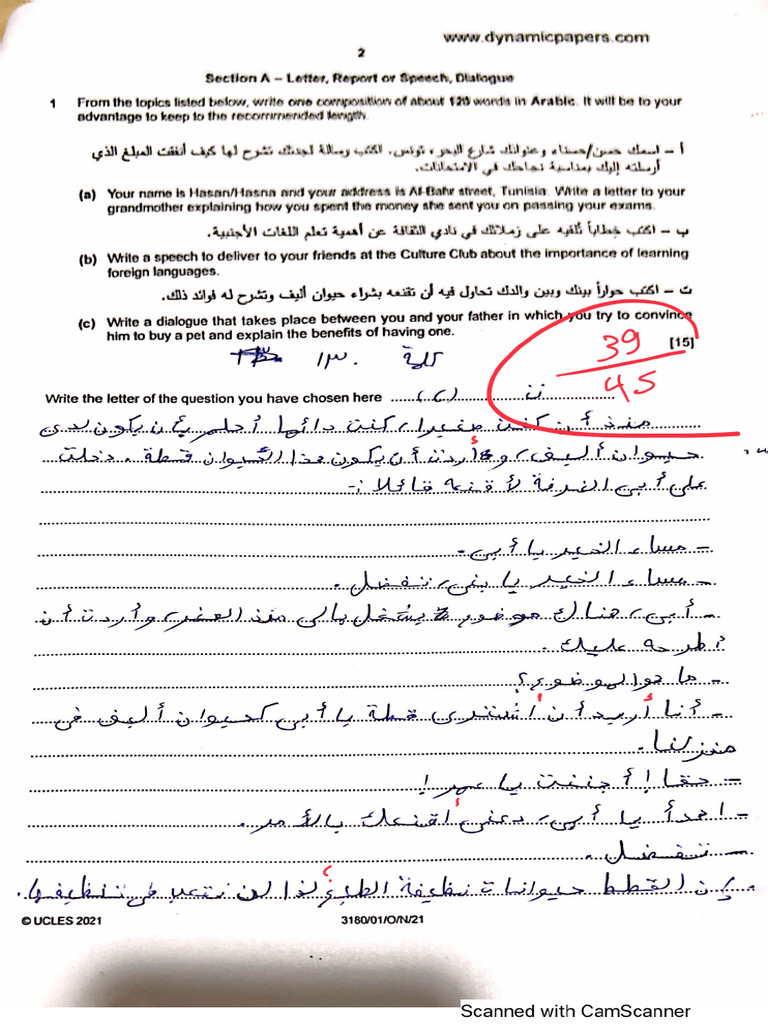 www.dynamicpapers.com
2
Section A – Letter, Report or Speech, Dialogue
1 From the topics listed below, write one composition of about 120 words in Arabic. It will be to your
advantage to keep to the recommended length.
أ – اسمك حسن/حسناء وعنوانك شارع البحر، تونس. اكتب رسالة لجدتك تشرح لها كيف أنفقت المبلغ الذي
أرسلته إليك بمناسبة نجاحك في الامتحانات.
(a) Your name is Hasan/Hasna and your address is Al-Bahr street, Tunisia. Write a letter to your
grandmother explaining how you spent the money she sent you on passing your exams.
ب – اكتب خطاباً تلقيه على زملائك في نادي الثقافة عن أهمية تعلم اللغات الأجنبية.
(b) Write a speech to deliver to your friends at the Culture Club about the importance of learning
foreign languages.
ت – اكتب حواراً بينك وبين والدك تحاول فيه أن تقنعه بشراء حيوان أليف وتشرح له فوائد ذلك.
(c) Write a dialogue that takes place between you and your father in which you try to convince
him to buy a pet and explain the benefits of having one.
[15]
39
45
١٣٠ كلمة
Write the letter of the question you have chosen here (c) ت
منذ أن كنت صغيرا، كنت دائما أحلم بأن يكون لدى
حيوان أليف، وأردت أن يكون هذا الحيوان قطة. دخلت
على أبى الغرفة لأقنعه قائلا:-
- مساء الخير يا أبى.
- مساء الخير يا بنى، تفضل.
- أبى، هناك موضوع يشغل بالى منذ الصغر، وأردت أن
أطرحه عليك.
- ما هو الموضوع؟
- أنا أريد أن أشترى قطة يا أبى كحيوان أليف فى
منزلنا.
- حقا! أجننت يا عمر!
- اهدأ يا أبى، دعنى أقنعك بالأمر.
- تفضل.
- إن القطط حيوانات نظيفة الطبع، لذا لن نتعب فى تنظيفها.
© UCLES 2021
3180/01/O/N/21
Scanned with CamScanner